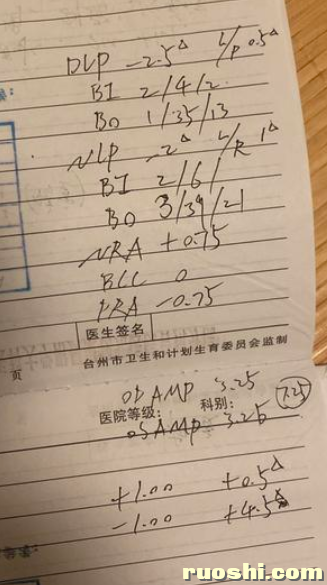 DLP -2.5△ L/R 0.5△
BI 2/4/2
BO 1/35/13
NLP -2△ L/R 1△
BI 2/6/
BO 3/39/21
NRA +0.75
BCC 0
PRA -0.75
医生签名
台州市卫生和计划生育委员会监制
页
OD AMP 3.25
医院等级: 科别: 7.25
OS AMP 3.25
+1.00 +0.5△
-1.00 +4.5△
ruoshi.com